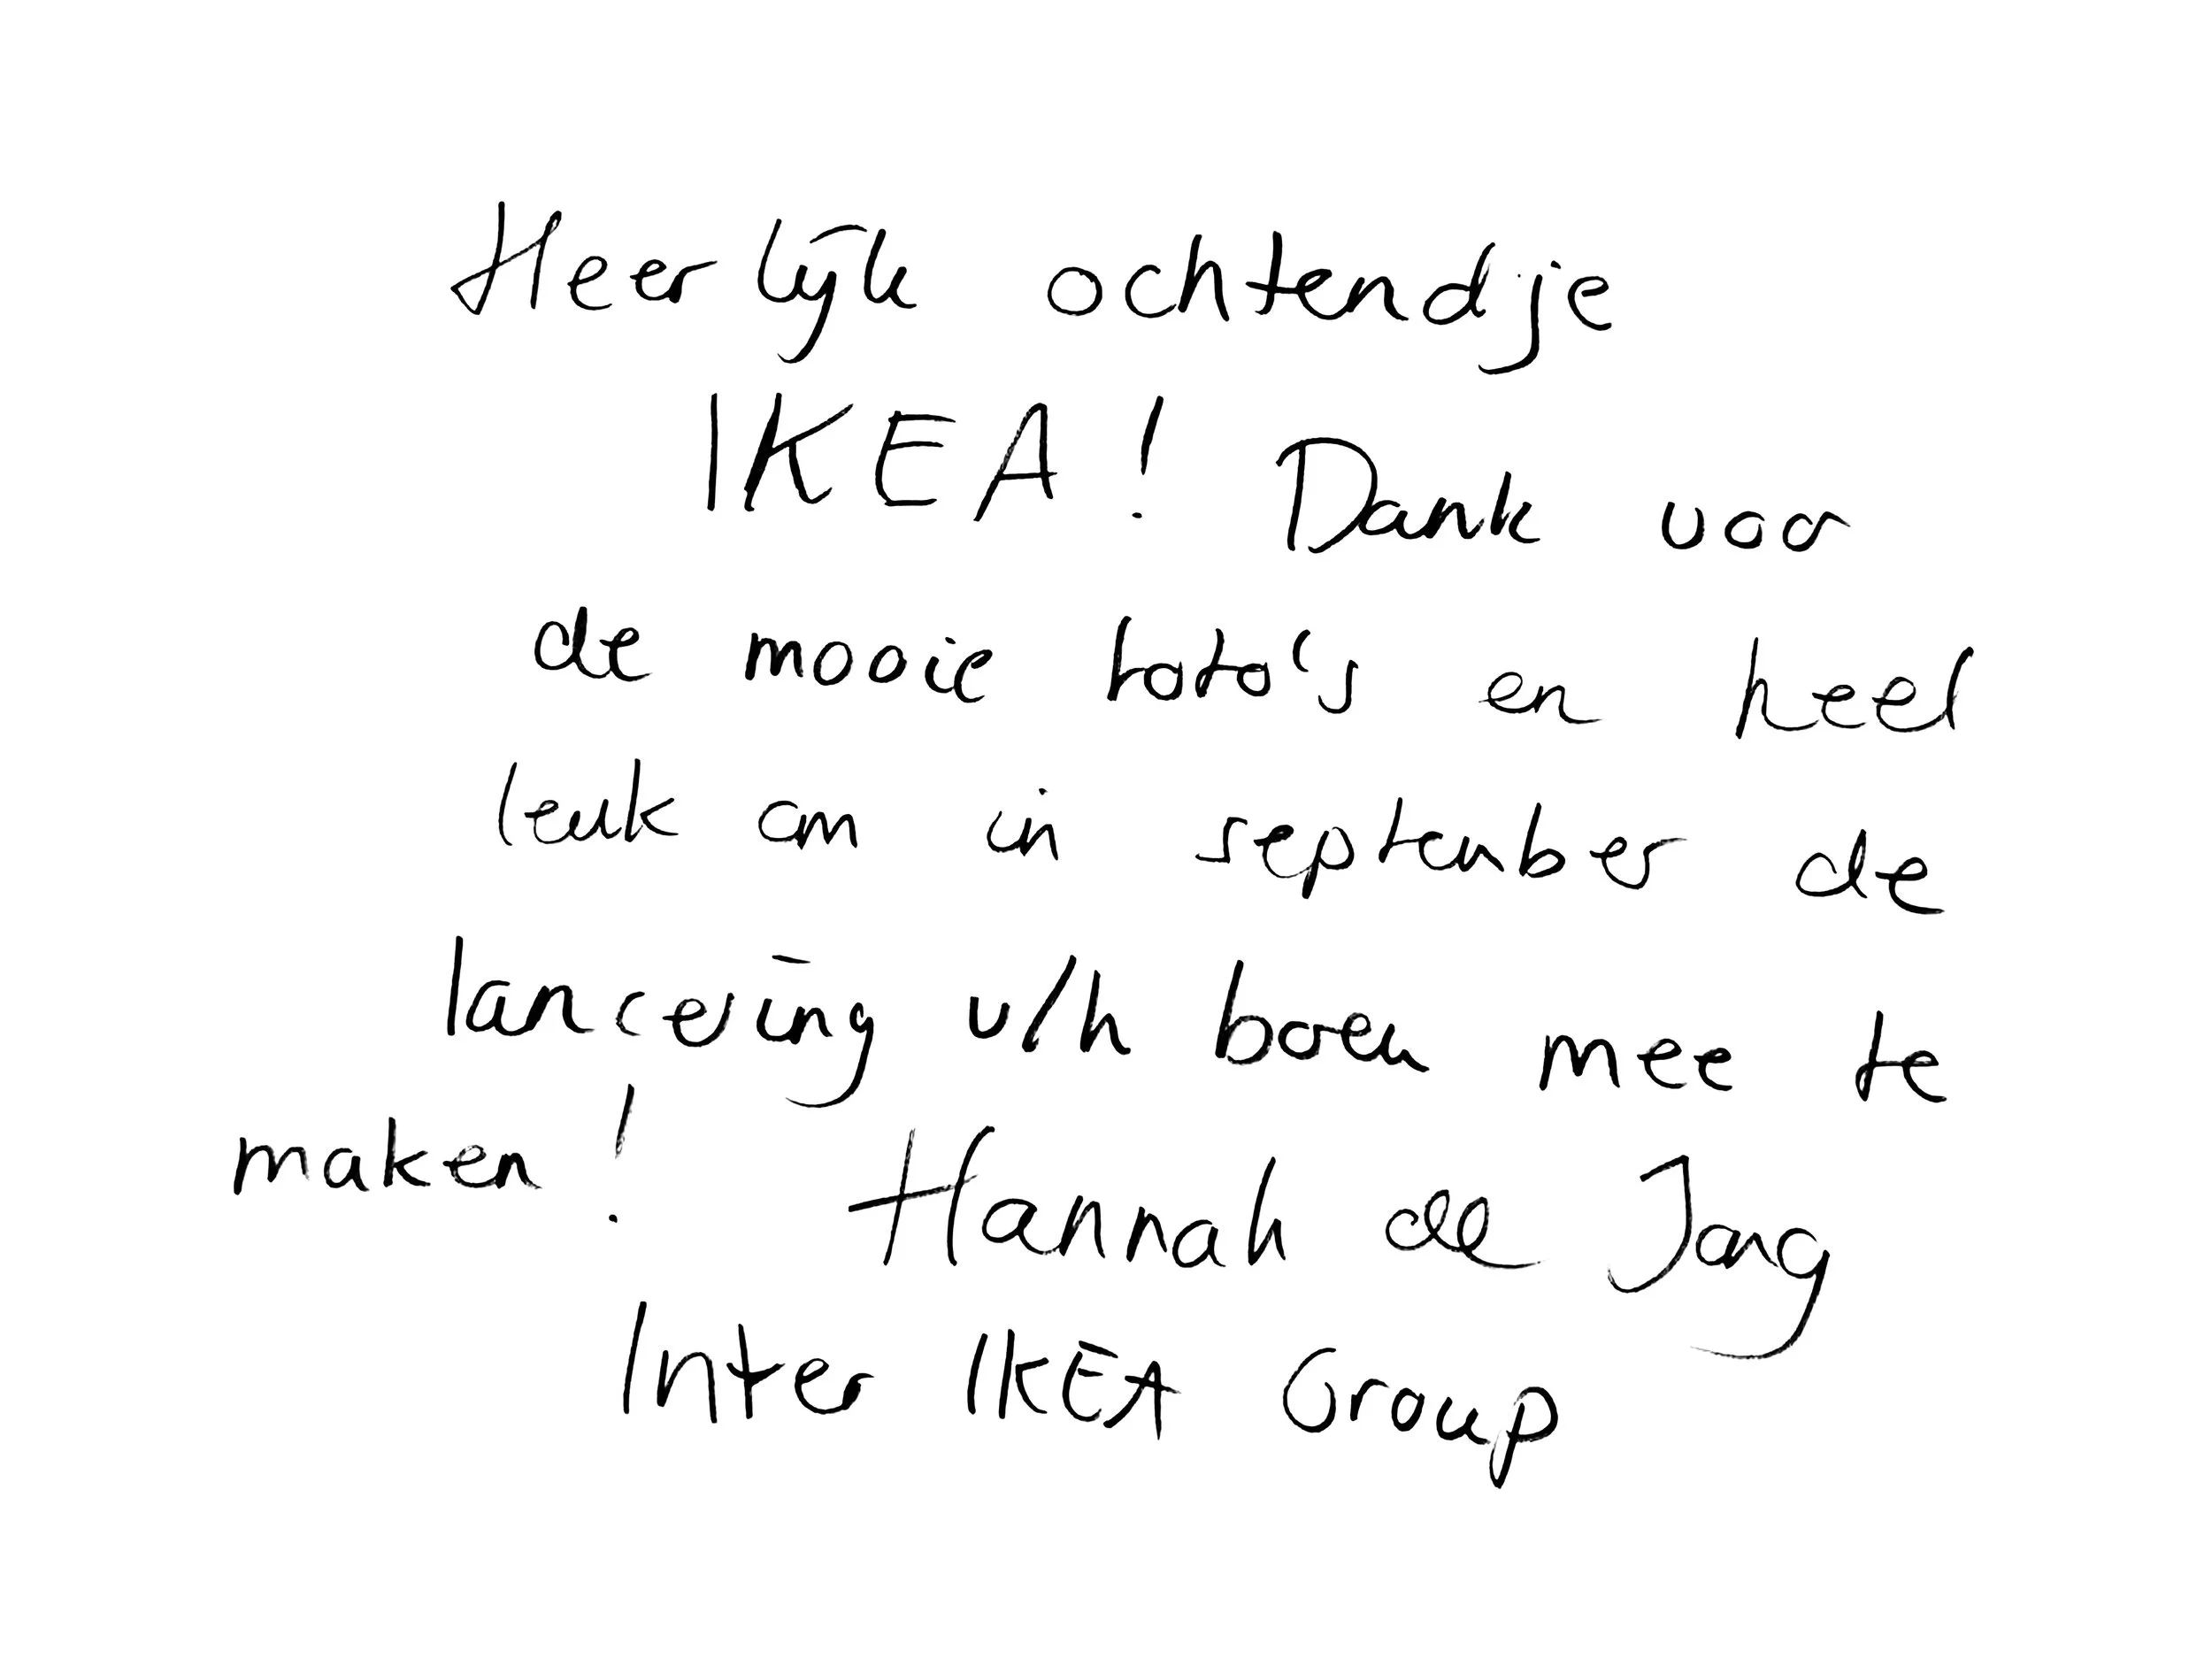 Heerlijk ochtendje
IKEA! Dank voor
de mooie foto's en heel
leuk om in september de
lancering v/h boek mee te
maken! Hannah de Jong
Inter IKEA Group